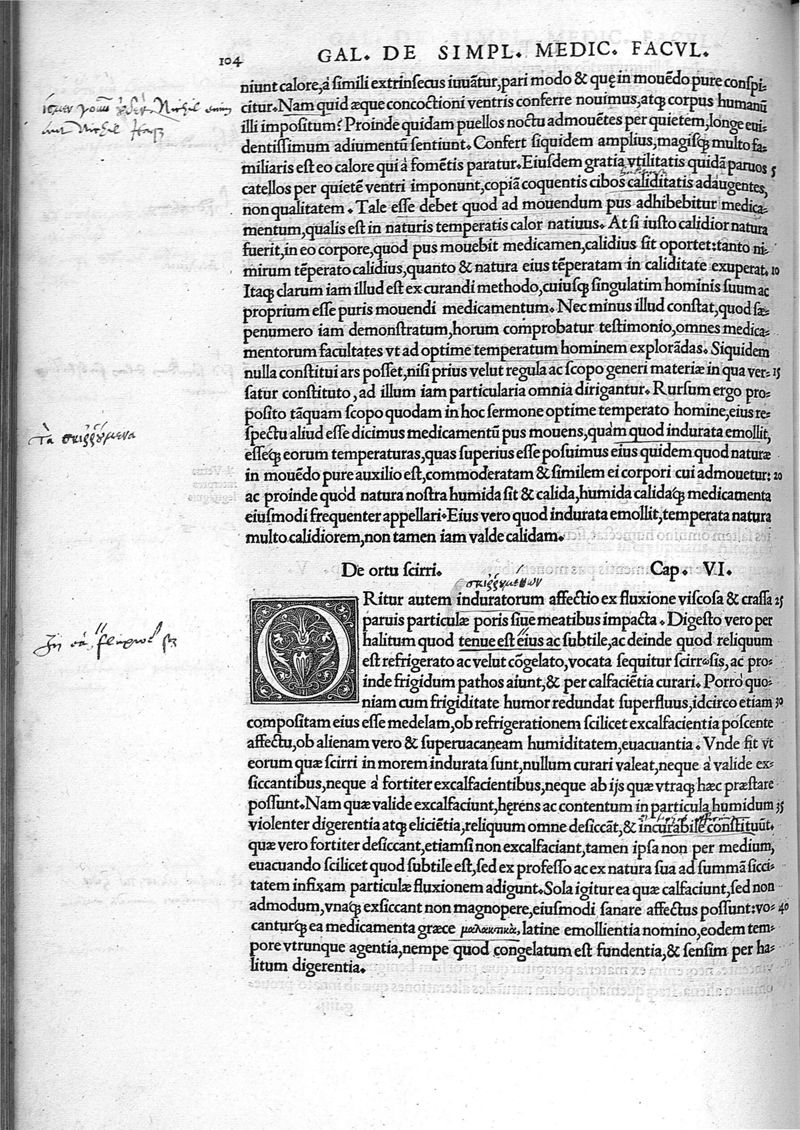 104
GAL. DE SIMPL. MEDIC. FACVL.
niunt calore, á simili extrinsecus iuuãtur, pari modo & quę in mouẽdo pure conspi-
citur. Nam quid æque concoctioni ventris conferre nouimus, atq; corpus humanũ
illi impositum? Proinde quidam puellos noctu admouẽtes per quietem, longe eui-
dentissimum adiumentũ sentiunt. Confert siquidem amplius, magisq; multo fa-
miliaris est eo calore qui à fomẽtis paratur. Eiusdem gratia vtilitatis quidã paruos 5
catellos per quietẽ ventri imponunt, copiã coquentis cibos caliditatis adaugentes,
non qualitatem. Tale esse debet quod ad mouendum pus adhibebitur medica-
mentum, qualis est in naturis temperatis calor natiuus. At si iusto calidior natura
fuerit, in eo corpore, quod pus mouebit medicamen, calidius sit oportet: tanto ni-
mirum tẽperato calidius, quanto & natura eius tẽperatam in caliditate exuperat. 10
Itaq; clarum iam illud est ex curandi methodo, cuiusq; singulatim hominis suum ac
proprium esse puris mouendi medicamentum. Nec minus illud constat, quod sæ-
penumero iam demonstratum, horum comprobatur testimonio, omnes medica-
mentorum facultates vt ad optime temperatum hominem explorãdas. Siquidem
nulla constitui ars posset, nisi prius velut regula ac scopo generi materiæ in qua ver- 15
satur constituto, ad illum iam particularia omnia dirigantur. Rursum ergo pro-
posito tãquam scopo quodam in hoc sermone optime temperato homine, eius re-
spectu aliud esse dicimus medicamentũ pus mouens, quàm quod indurata emollit,
esseq; eorum temperaturas, quas superius esse posuimus eius quidem quod naturæ
in mouẽdo pure auxilio est, commoderatam & similem ei corpori cui admouetur: 20
ac proinde quòd natura nostra humida sit & calida, humida calidaq; medicamenta
eiusmodi frequenter appellari. Eius vero quod indurata emollit, temperata natura
multo calidiorem, non tamen iam valde calidam.
Τὰ σκιῤῥούμενα
De ortu scirri. Cap. VI.
σκιῤῥουμένων
ORitur autem induratorum affectio ex fluxione viscosa & crassa 25
paruis particulæ poris siue meatibus impacta. Digesto vero per
halitum quod tenue est eius ac subtile, ac deinde quod reliquum
est refrigerato ac velut cõgelato, vocata sequitur scirrωsis, ac pro-
inde frigidum pathos aiunt, & per calfaciẽtia curari. Porró quo-
niam cum frigiditate humor redundat superfluus, idcirco etiam 30
compositam eius esse medelam, ob refrigerationem scilicet excalfacientia poscente
affectu, ob alienam vero & superuacaneam humiditatem, euacuantia. Vnde fit vt
eorum quæ scirri in morem indurata sunt, nullum curari valeat, neque à valide ex-
siccantibus, neque à fortiter excalfacientibus, neque ab ijs quæ vtraq; hæc præstare
possunt. Nam quæ valide excalfaciunt, hęrens ac contentum in particula humidum 35
violenter digerentia atq; eliciẽtia, reliquum omne desiccãt, & incurabile constituũt.
quæ vero fortiter desiccant, etiamsi non excalfaciant, tamen ipsa non per medium,
euacuando scilicet quod subtile est, sed ex professo ac ex natura sua ad summã sicci-
tatem infixam particulæ fluxionem adigunt. Sola igitur ea quæ calfaciunt, sed non
admodum, vnaq; exsiccant non magnopere, eiusmodi sanare affectus possunt: vo- 40
canturq; ea medicamenta græce μαλακτικὰ, latine emollientia nomino, eodem tem-
pore vtrunque agentia, nempe quod congelatum est fundentia, & sensim per ha-
litum digerentia.